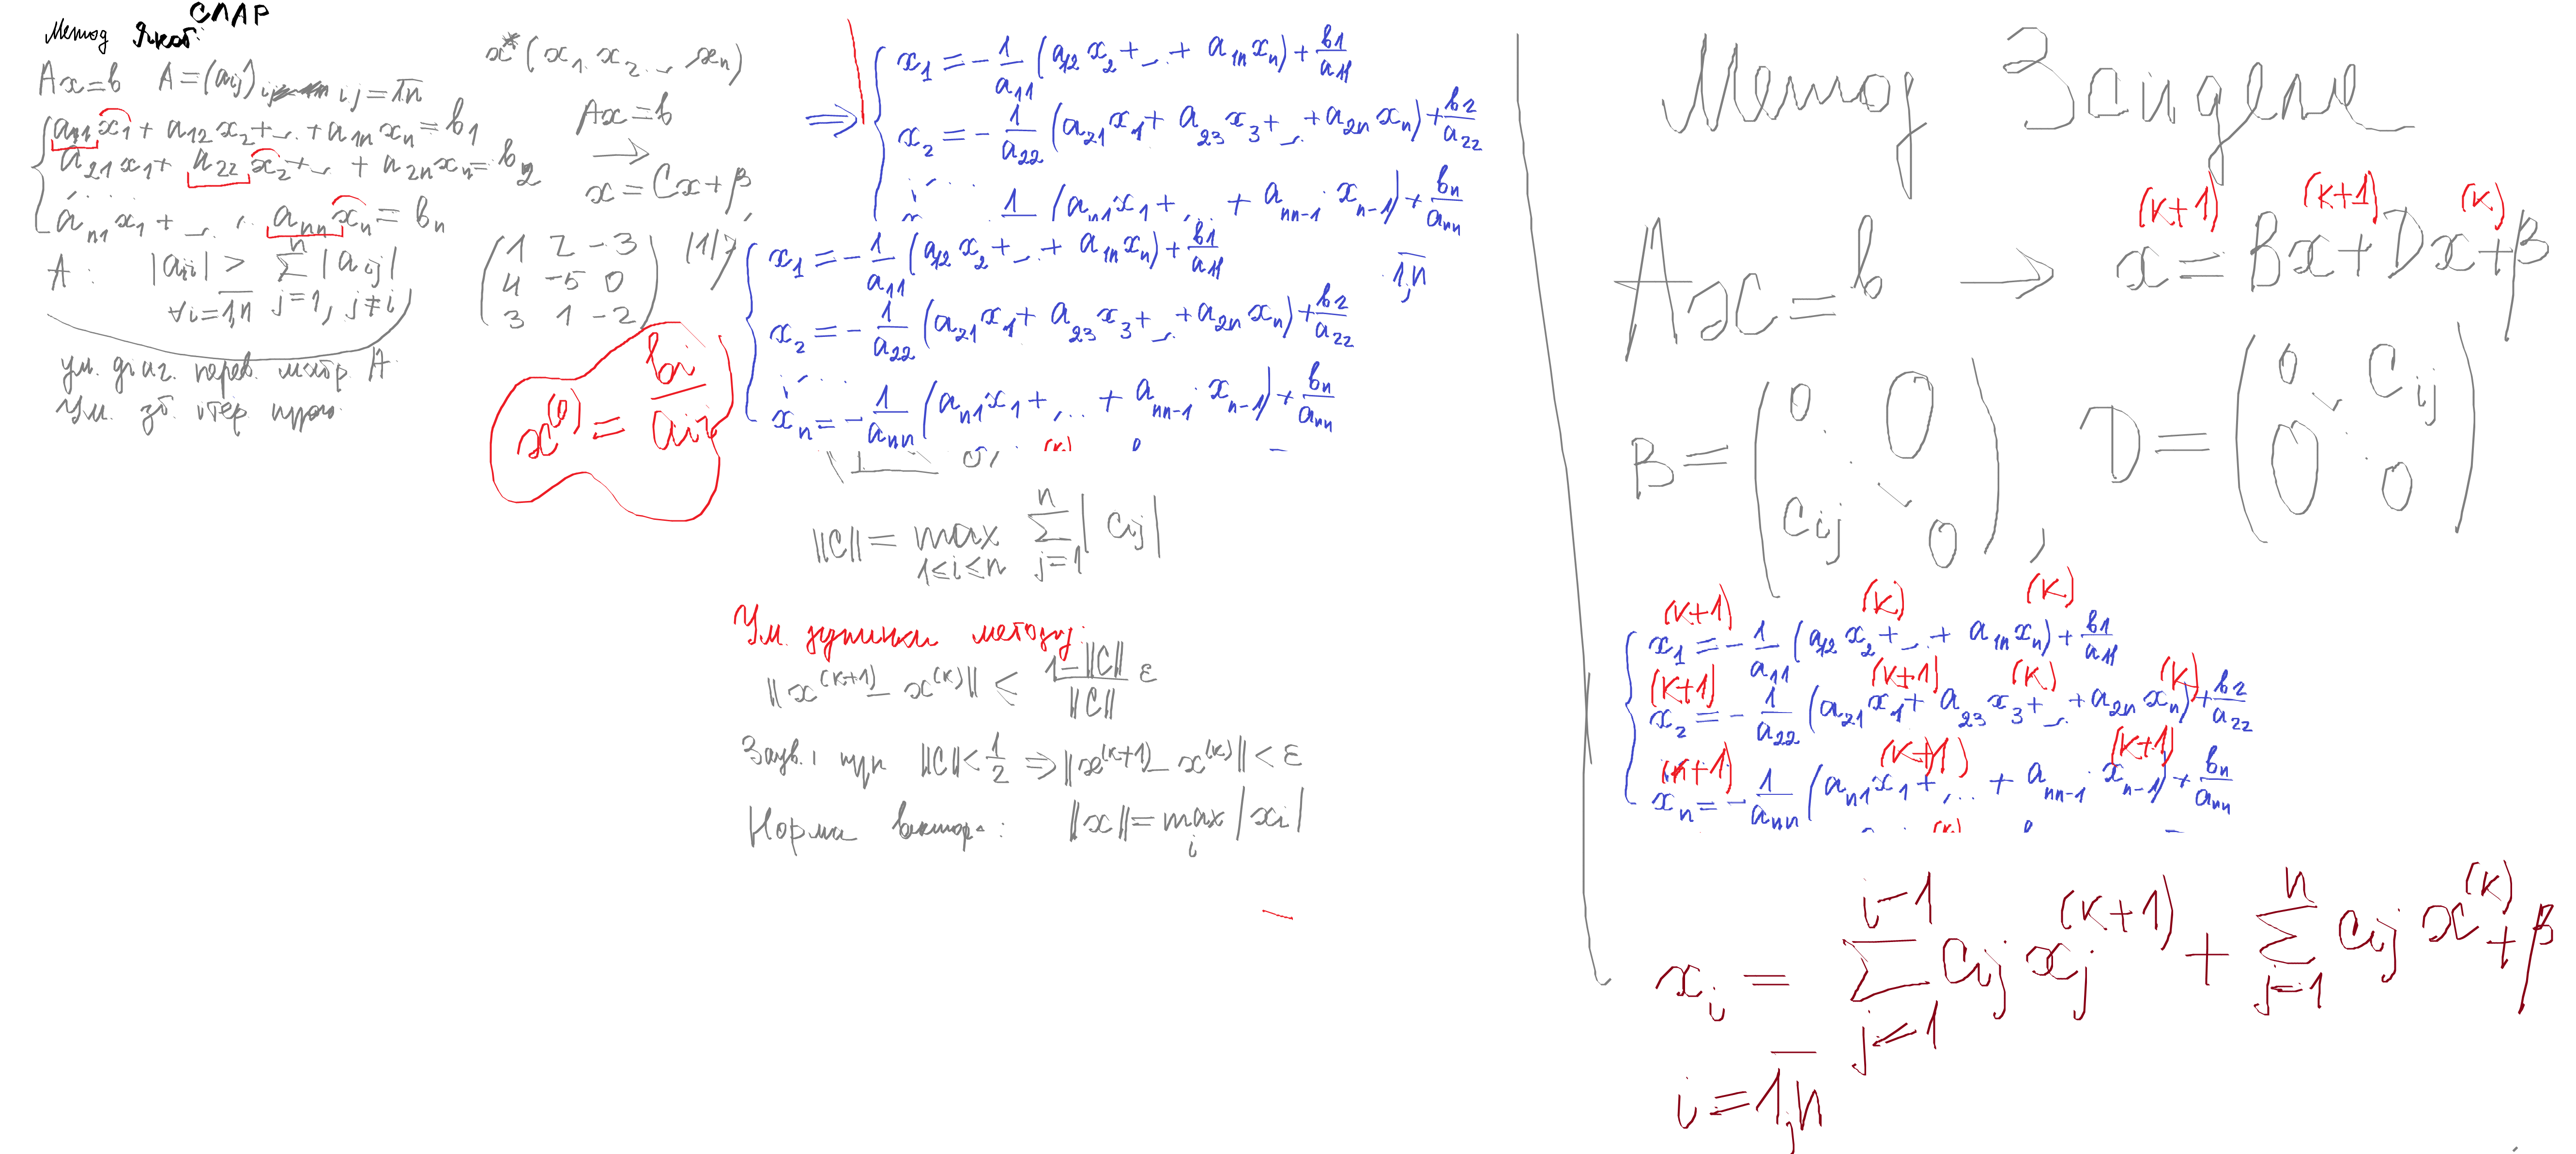 СЛАР
Метод Якобі
Ax=b A=(aij) ij=1,n
a11x1+a12x2+...+a1nxn=b1
a21x1+a22x2+...+a2nxn=b2
an1x1+... annxn=bn
A: |aii| > ∑ⁿj=1, j≠i |aij|
∀i=1,n
ум. діаг. перев. матр. A
Ум. зб. ітер. проц.
x*(x1 x2 ... xn)
Ax=b
→
x=Cx+β,
(1 2 -3
4 -5 0
3 1 -2)
|1|>
x⁽⁰⁾ = bi/aii
⇒ x1 = -1/a11 (a12x2+...+a1nxn)+b1/a11
x2 = -1/a22 (a21x1+a23x3+...+a2nxn)+b2/a22
1 (an1x1+...+ann-1 xn-1)+bn/ann
x1 = -1/a11 (a12x2+...+a1nxn)+b1/a11
1,n
x2 = -1/a22 (a21x1+a23x3+...+a2nxn)+b2/a22
xn = -1/ann (an1x1+...+ann-1 xn-1)+bn/ann
||C|| = max 1≤i≤n ∑ⁿj=1 |cij|
Ум. зупинки методу:
||x⁽ᵏ⁺¹⁾-x⁽ᵏ⁾|| ≤ (1-||C||)/||C|| ε
Заув.: при ||C||<1/2 ⇒ ||x⁽ᵏ⁺¹⁾-x⁽ᵏ⁾||<ε
Норма вектора: ||x||=max i |xi|
Метод Зейделя
Ax=b → x⁽ᵏ⁺¹⁾=Bx⁽ᵏ⁺¹⁾+Dx⁽ᵏ⁾+β
B=(0 0 cij 0), D=(0 cij 0 0)
x1⁽ᵏ⁺¹⁾ = -1/a11 (a12x2⁽ᵏ⁾+...+a1nxn⁽ᵏ⁾)+b1/a11
x2⁽ᵏ⁺¹⁾ = -1/a22 (a21x1⁽ᵏ⁺¹⁾+a23x3⁽ᵏ⁾+...+a2nxn⁽ᵏ⁾)+b2/a22
xn⁽ᵏ⁺¹⁾ = -1/ann (an1x1⁽ᵏ⁺¹⁾+...+ann-1 xn-1⁽ᵏ⁺¹⁾)+bn/ann
xi = ∑ⁱ⁻¹j=1 cij xj⁽ᵏ⁺¹⁾ + ∑ⁿj=1 cij x⁽ᵏ⁾+β
i=1,n